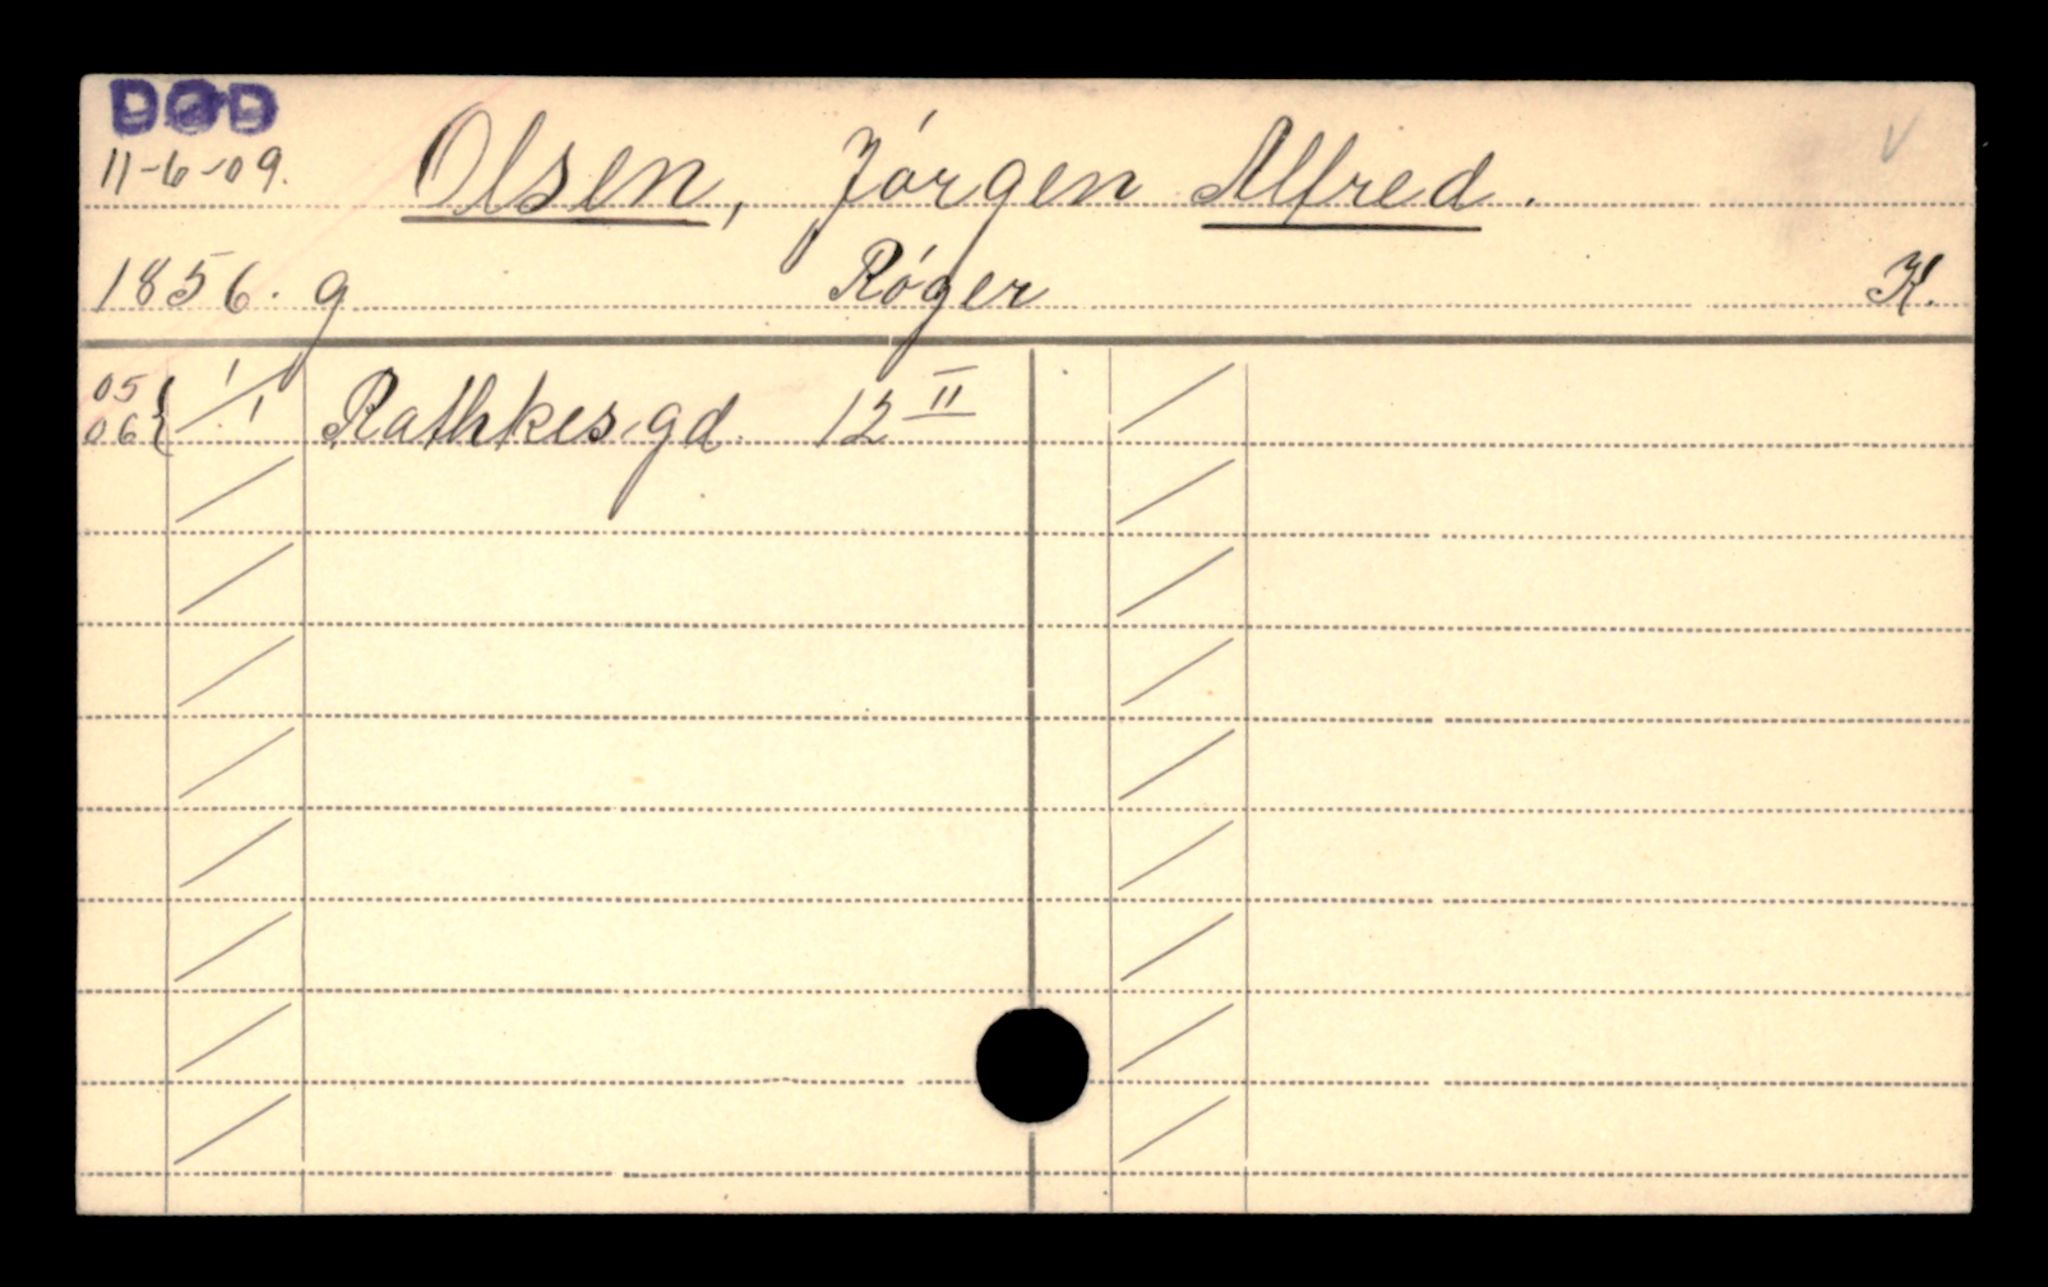 DØD
11-6-09.
Olsen, Jórgen Alfred.
1856. g Róger K.
05
06 { 1/1 Rathkesgd. 12 II